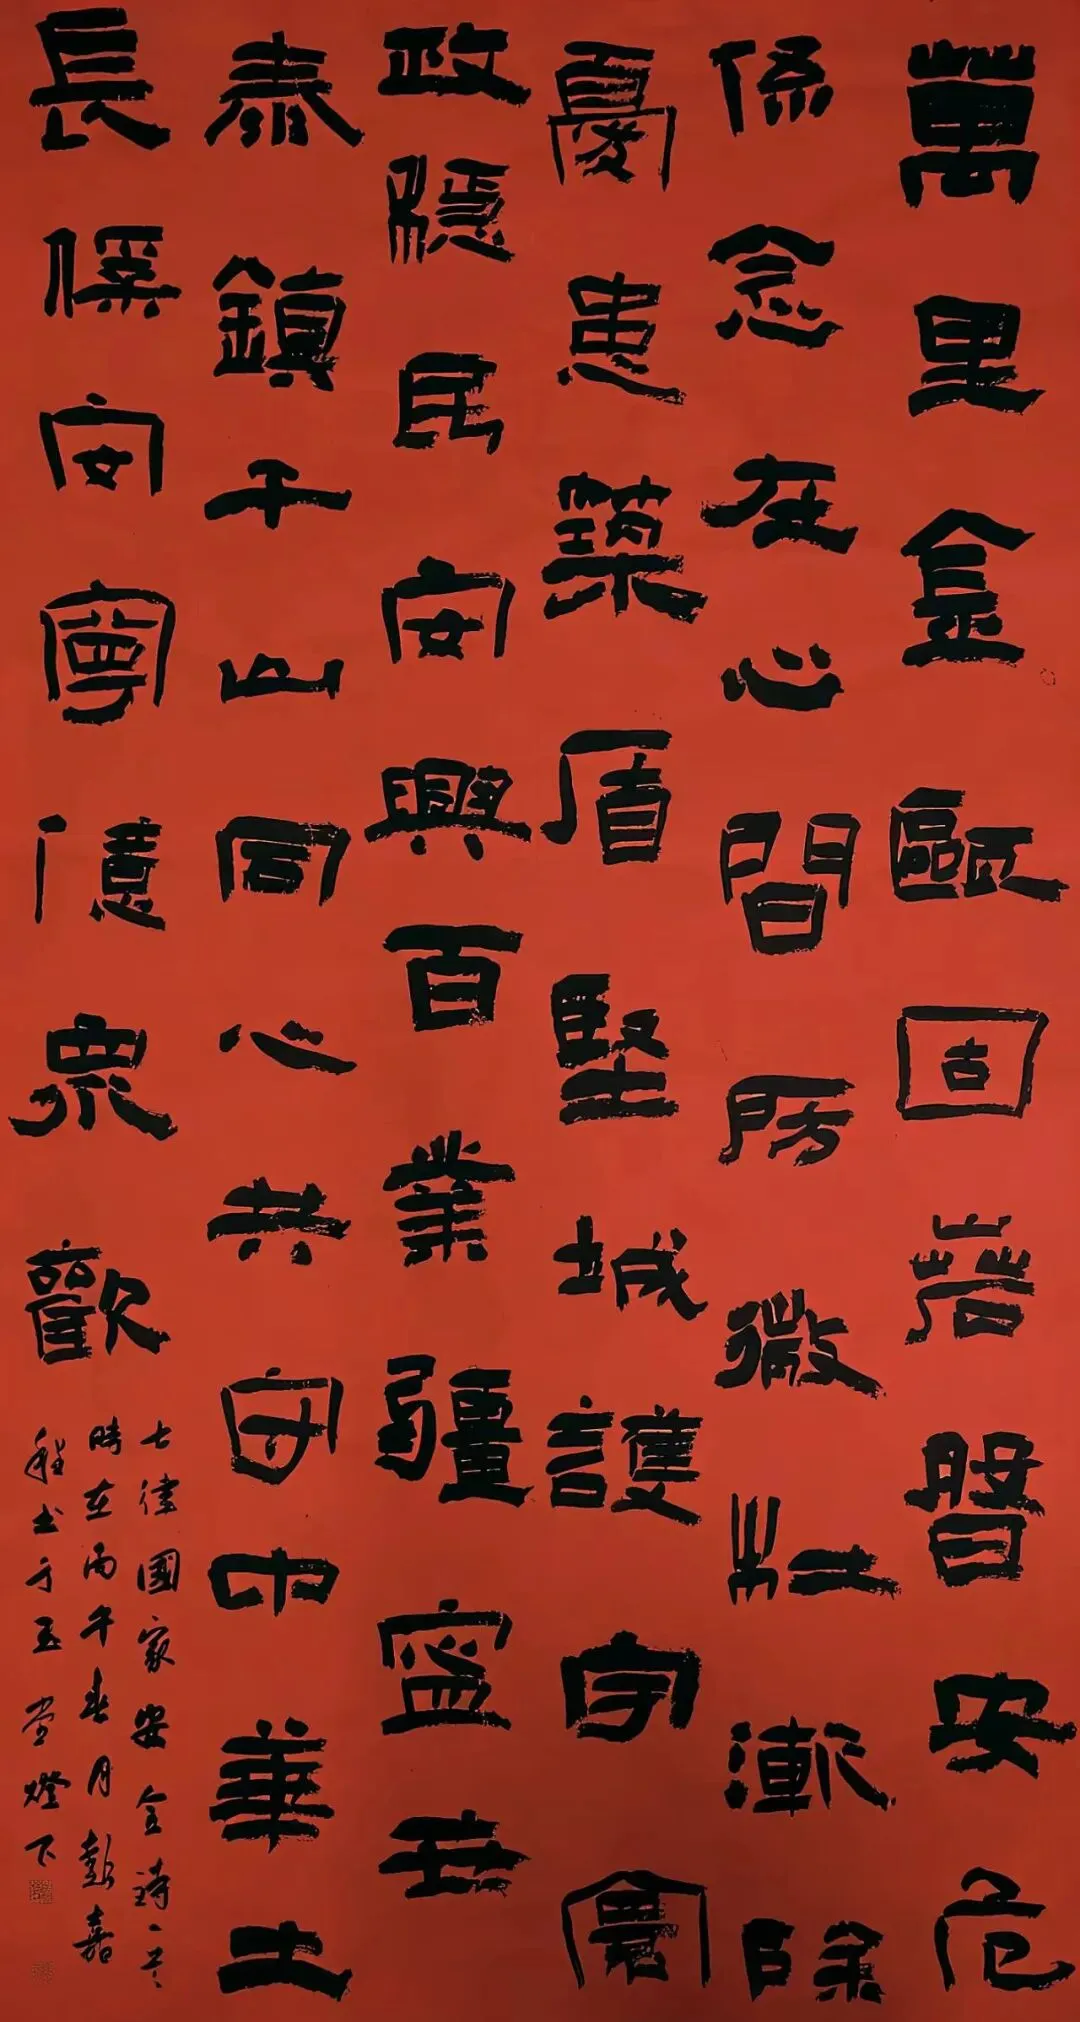 萬里金甌固若磐安危
係念在心間防微杜漸除
憂患築盾堅城護宇寰
政穩民安興百業疆寧世
泰鎮千山同心共守中華土
長保安寧億眾歡
七律國家安全詩一首
時在丙午春月彭嘉
程书于玉堂燈下